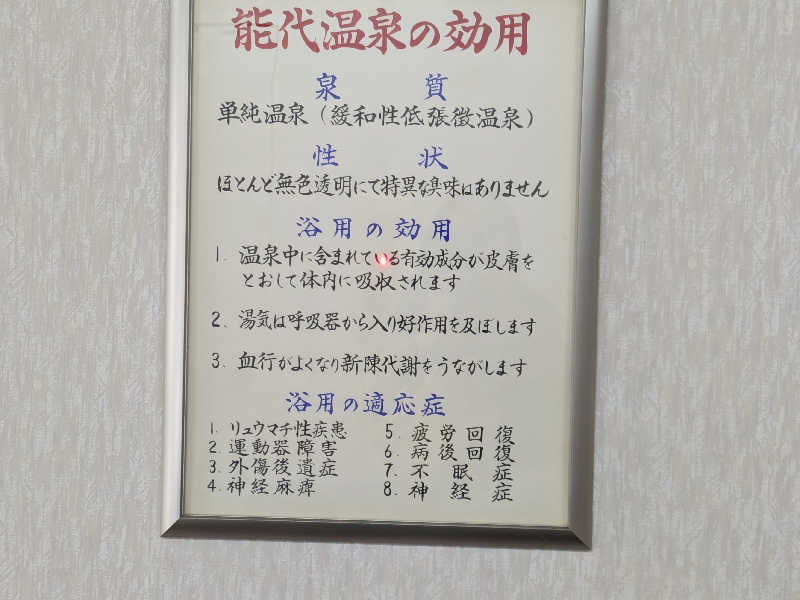 能代温泉の効用
泉質
単純温泉（緩和性低張微温泉）
性状
ほとんど無色透明にて特異な臭味はありません
浴用の効用
1. 温泉中に含まれている有効成分が皮膚を
とおして体内に吸収されます
2. 湯気は呼吸器から入り好作用を及ぼします
3. 血行がよくなり新陳代謝をうながします
浴用の適応症
1. リュウマチ性疾患
2. 運動器障害
3. 外傷後遺症
4. 神経麻痺
5. 疲労回復
6. 病後回復
7. 不眠症
8. 神経症